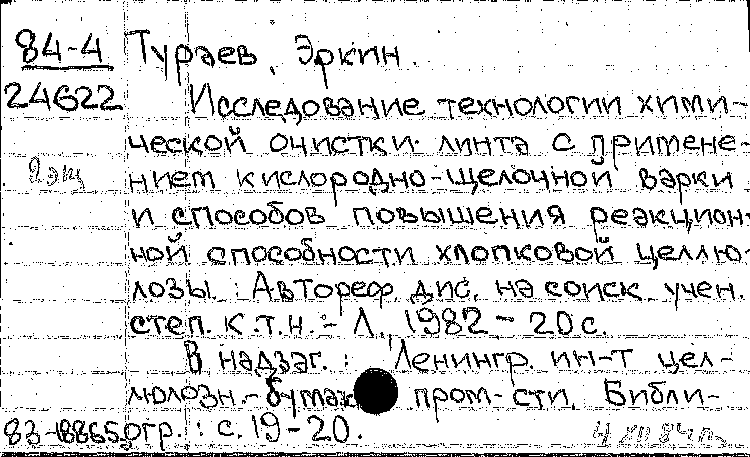 84-4 Тураев, Эркин.
24622 Исследование технологии хими-
ческой очистки линта с примене-
2 экз нием кислородно-щелочной варки
и способов повышения реакцион-
ной способности хлопковой целлю-
лозы : Автореф. дис. на соиск. учен.
степ. к.т.н. - Л., 1982 - 20 с.
В надзаг. : Ленингр. ин-т цел-
люлозн.-бумаж пром-сти. Библи-
83-18865 огр. : с. 19-20.